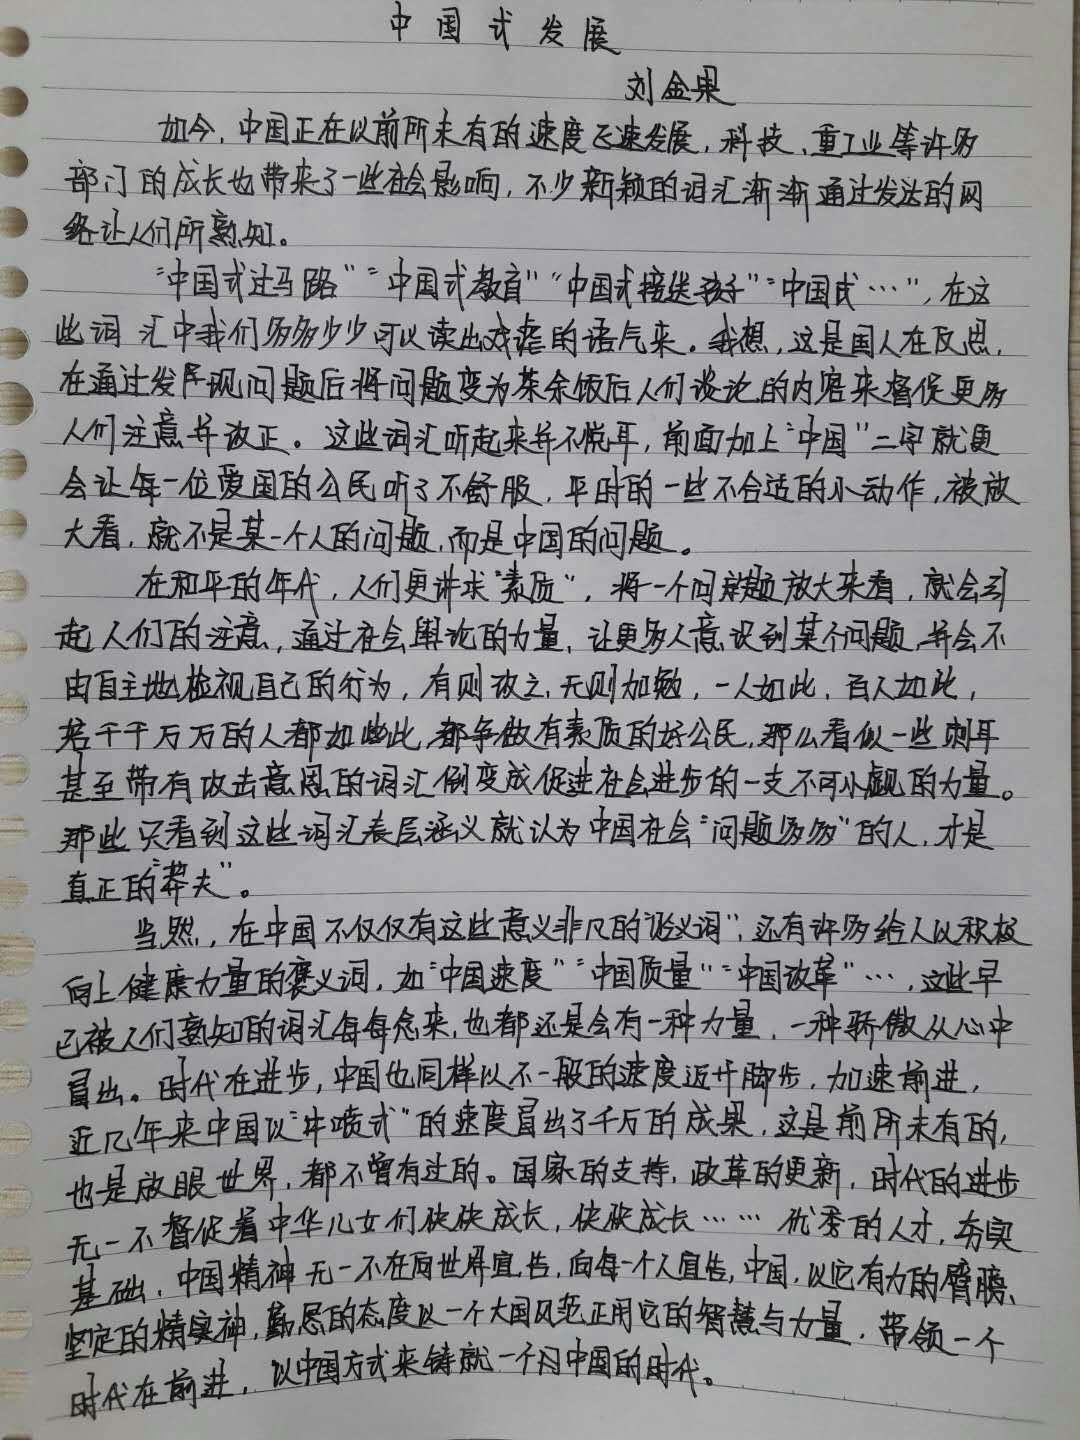 中国式发展
刘金果
如今，中国正在以前所未有的速度飞速发展，科技、重工业等许多
部门的成长也带来了一些社会影响，不少新颖的词汇渐渐通过发达的网
络让人们所熟知。
“中国式过马路”“中国式教育”“中国式接送孩子”“中国式…”，在这
些词汇中我们多多少少可以读出戏虐的语气来。我想，这是国人在反思，
在通过发现问题后将问题变为茶余饭后人们谈论的内容来督促更多
人们注意并改正。这些词汇听起来并不悦耳，前面加上“中国”二字就更
会让每一位爱国的公民听了不舒服，平时的一些不合适的小动作，被放
大看，就不是某一个人的问题，而是中国的问题。
在和平的年代，人们更讲求“素质”，将一个问题放大来看，就会引
起人们的注意，通过社会舆论的力量，让更多人意识到某个问题，并会不
由自主地检视自己的行为，有则改之，无则加勉，一人如此，百人如此，
若千千万万的人都如此，都争做有素质的好公民，那么看似一些刺耳
甚至带有攻击意图的词汇倒变成促进社会进步的一支不可小觑的力量。
那些只看到这些词汇表层涵义就认为中国社会“问题多多”的人，才是
真正的“莽夫”。
当然，在中国不仅仅有这些意义非凡的“贬义词”，还有许多给人以积极
向上健康力量的褒义词，如“中国速度”“中国质量”“中国改革”…，这些早
已被人们熟知的词汇每每念来，也都还是会有一种力量，一种骄傲从心中
冒出。时代在进步，中国也同样以不一般的速度迈开脚步，加速前进，
近几年来中国以“井喷式”的速度冒出了千万的成果，这是前所未有的，
也是放眼世界，都不曾有过的。国家的支持，改革的更新，时代的进步
无一不督促着中华儿女们快快成长，快快成长……优秀的人才，夯实
基础，中国精神无一不在向世界宣告，向每一个人宣告，中国，以它有力的臂膀、
坚定的精神，勤恳的态度以一个大国风范正用它的智慧与力量，带领一个
时代在前进，以中国方式来铸就一个问中国的时代。